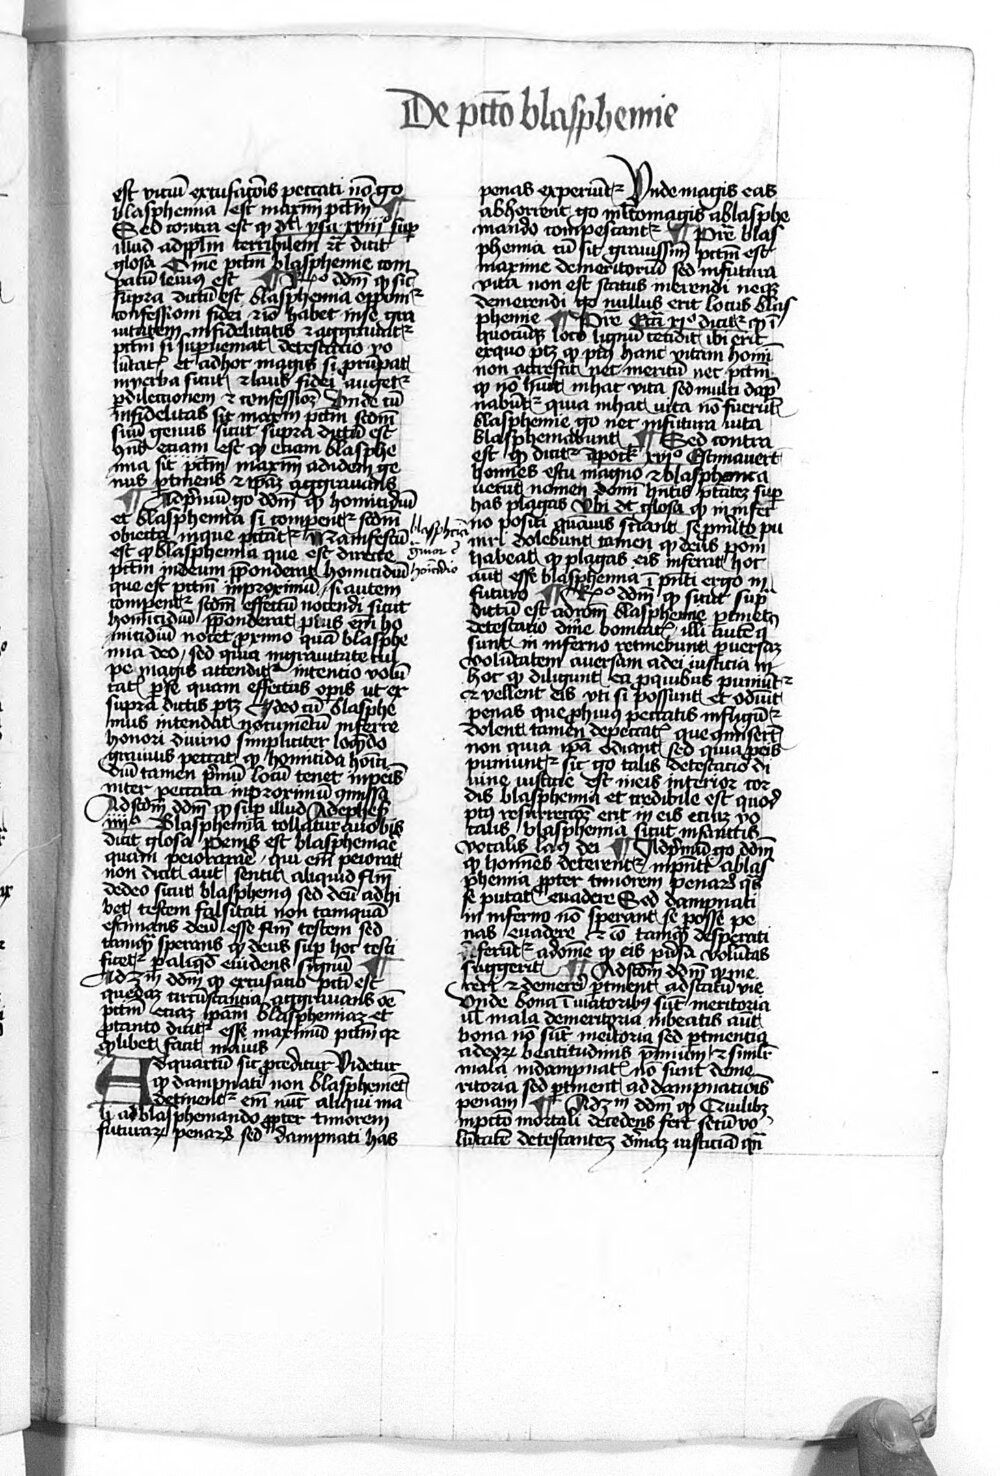 De pctō blasphemie
est vicium excusacōis peccati nō g̊
blasphemia est maxīm pctm̄ ¶
Sed contra est ꝙ dr̄ ysa xviijº sup̄
illud ad pplm̄ terribilem ꝛc̄ dicit
glosa Om̄e pctm̄ blasphemie com
patū leuius est ¶ Rº dd̄m ꝙ sic̄
supra dictū est blasphemia opponiᷓ
confessioni fidei et iō habet in se gra
uitatem infidelitatis et aggrauatᷓ
pctm̄ si supueniat detestacio vo
lūtatꝭ et adhoc magis si prūpat
in verba sicut et laus fidei augetᷓ
p dilectionem et confessionē Vnde cū
infidelitas sit maxīm pctm̄ scdm̄
suū genus sicut supra dictū est
ꝯns etiam est ꝙ etiam blasphe
mia sit pctm̄ maxīm ad idem ge
nus ptinens et ipm̄ aggrauans
¶ Ad pͥmū g̊ dd̄m ꝙ homicidiū
et blasphemia si compentᷓ scdm̄
obiecta in que peccatᷓ manifestū
est ꝙ blasphemia que est directe
pctm̄ in deum ppōnderat homicidiū
que est pctm̄ in proximū si autem
compentᷓ scdm̄ effectū nocendi sicut
homicidiū ppōnderat plus em̄ ho
micidiū nocet primo quā blasphe
mia deo sed quia in grauitate cul
pe magis attenditᷓ intencio volū
tatꝭ pse quam effectus opis ut ex
supra dictis ptꝫ Ideo cū blasphe
mus intendat nocumētū inferre
honori diuino simpliciter loqn̄do
grauius peccat ꝙ homicida homi
diū tamen pͥmū locū tenet in pctīs
inter peccata in proximū ꝯmissa
Ad scdm̄ dd̄m ꝙ sup̄ illud Ad ephes̄
iiijº Blasphemia tollatur a uobis
dicit glosa Peius est blasphemae
quam peiorarae qui em̄ peiorat
non dicit aut sentit aliquid fl̄m
de deo sicut blasphemus sed deū adhi
bet testem falsitati non tamquā
estimans deū esse fl̄m testem sed
tamqȝ sperans ꝙ deus sup̄ hoc testi
ficetᷓ p aliqd̄ euidens signū ¶
Ad 3m dd̄m ꝙ excusatio pcti est
quedaꝫ circūstantia aggrauans oē
pctm̄ etiaꝫ ipam̄ blasphemiaꝫ et
ptanto dicitᷓ esse maximū pctm̄ qꝛ
qͥlibet facit maius
Ad quartū sic proceditur Videtur
ꝙ dampnati non blasphement
detinentᷓ em̄ nūc aliqui ma
li ad blasphemando ppter timorem
futurarꝫ penarꝫ sed dampnati has
blasphemia
grauior ē
homicidio
penas experiūtᷓ Vnde magis eas
abhorrent g̊ mltomagis a blasphe
mando compescantᷓ ¶ Pre̅ blas
phemia cū sit grauissim̄ pctm̄ est
maxime demeritoriū sed in futura
vita non est status merendi neqꝫ
demerendi g̊ nullus erit locus blas
phemie ¶ Pre̅ Ecc̄i xiº dicitᷓ ꝙ ī
quocūqꝫ loco lignū ceciderit ibi erit
ex quo ptꝫ ꝙ post hanc vitam homī
non accrescit nec meritū nec pctm̄
ꝙ nō huit in hac vita sed multi dāp
nabūtᷓ quia in hac uita nō fuerūt
blasphemie g̊ nec in futura uita
blasphemabunt ¶ Sed contra
est ꝙ dicitᷓ Apock xvjº Estuauerūt
homines estu magno et blasphema
uerūt nomen domī hn̄tis ptātem sup̄
has plagas Vbi dr̄ glosa ꝙ in infer
no positi quāuis sciant se pmito pu
niri dolebunt tamen ꝙ deus pon̄
habeat ꝙ plagas eis inferat hoc
aūt esse blasphemia ī pn̄ti ergo in
futuro ¶ Rº dd̄m ꝙ sicut sup̄
dictū est ad rōnem blasphemie ptinet
detestacio diuine bonitatꝭ illi autē q̄
sunt in inferno retinebunt puersaꝫ
volūtatem auersam a dei iusticia in
hoc ꝙ diligunt ea p quibus puniūtᷓ
et vellent eis vti si possunt et odiūt
penas que p huiꝰ peccatis infligūtᷓ
dolent tamen de peccatꝭ que ꝯmiserūt
non quia ipa odiant sed quia p eis
puniuntᷓ sic g̊ talis detestacio di
uine iusticie est in eis interior cor
dis blasphemia et credibile est quod
post resurrectōeꝫ erit in eis etiaꝫ vo
calis blasphemia sicut in sanctis
vocalis laus dei ¶ Ad pͥmū g̊ dd̄m
ꝙ homines deterrentᷓ in pn̄ti a blas
phemia ppter timorem penarꝫ qͣs
se putāt euadere Sed dampnati
in inferno nō sperant se posse pe
nas euadere et iō tamqȝ desperati
ferūtᷓ ad om̄e ꝙ eis puersa voluntas
suggerit ¶ Ad scdm̄ dd̄m ꝙ me
reri et demereri ptinent ad statū vie
Vnde bona ī viatoribꝰ sūt meritoria
ul̄ mala demeritoria in beatis aūt
bona nō sūt meritoria sed ptinentia
ad eorꝫ beatitudinis pͥmium et simil̄r
mala in dampnatꝭ nō sunt deme
ritoria sed ptinent ad dampnationis
penam ¶ Ad 3m dd̄m ꝙ Quilibꝫ
in pctō mortali decedens fert secū vo
lūtatē detestantem diuinaꝫ iusticiā qn̄